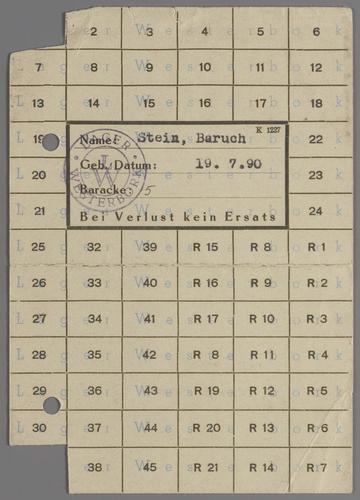 2 3 4 5 6
7 8 9 10 11 12
13 14 15 16 17 18
19 22
K 1227
Name: Stein, Baruch
Geb. Datum: 19. 7.90
20 23
Baracke: 5
LAGER WESTERBORK
LW
21 24
Bei Verlust kein Ersats
25 32 39 R 15 R 8 R 1
26 33 40 R 16 R 9 R 2
27 34 41 R 17 R 10 R 3
28 35 42 R 8 R 11 R 4
29 36 43 R 19 R 12 R 5
30 37 44 R 20 R 13 R 6
38 45 R 21 R 14 R 7